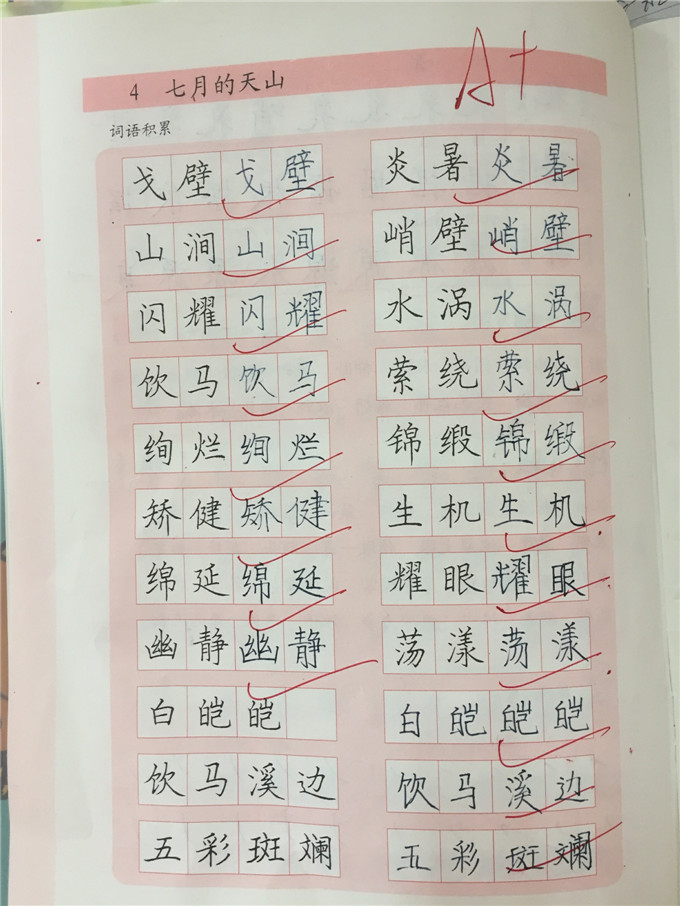 A+
4 七月的天山
词语积累
戈壁戈壁 炎暑炎暑
山涧山涧 峭壁峭壁
闪耀闪耀 水涡水涡
饮马饮马 萦绕萦绕
绚烂绚烂 锦缎锦缎
矫健矫健 生机生机
绵延绵延 耀眼耀眼
幽静幽静 荡漾荡漾
白皑皑 白皑皑皑
饮马溪边 饮马溪边
五彩斑斓 五彩斑斓